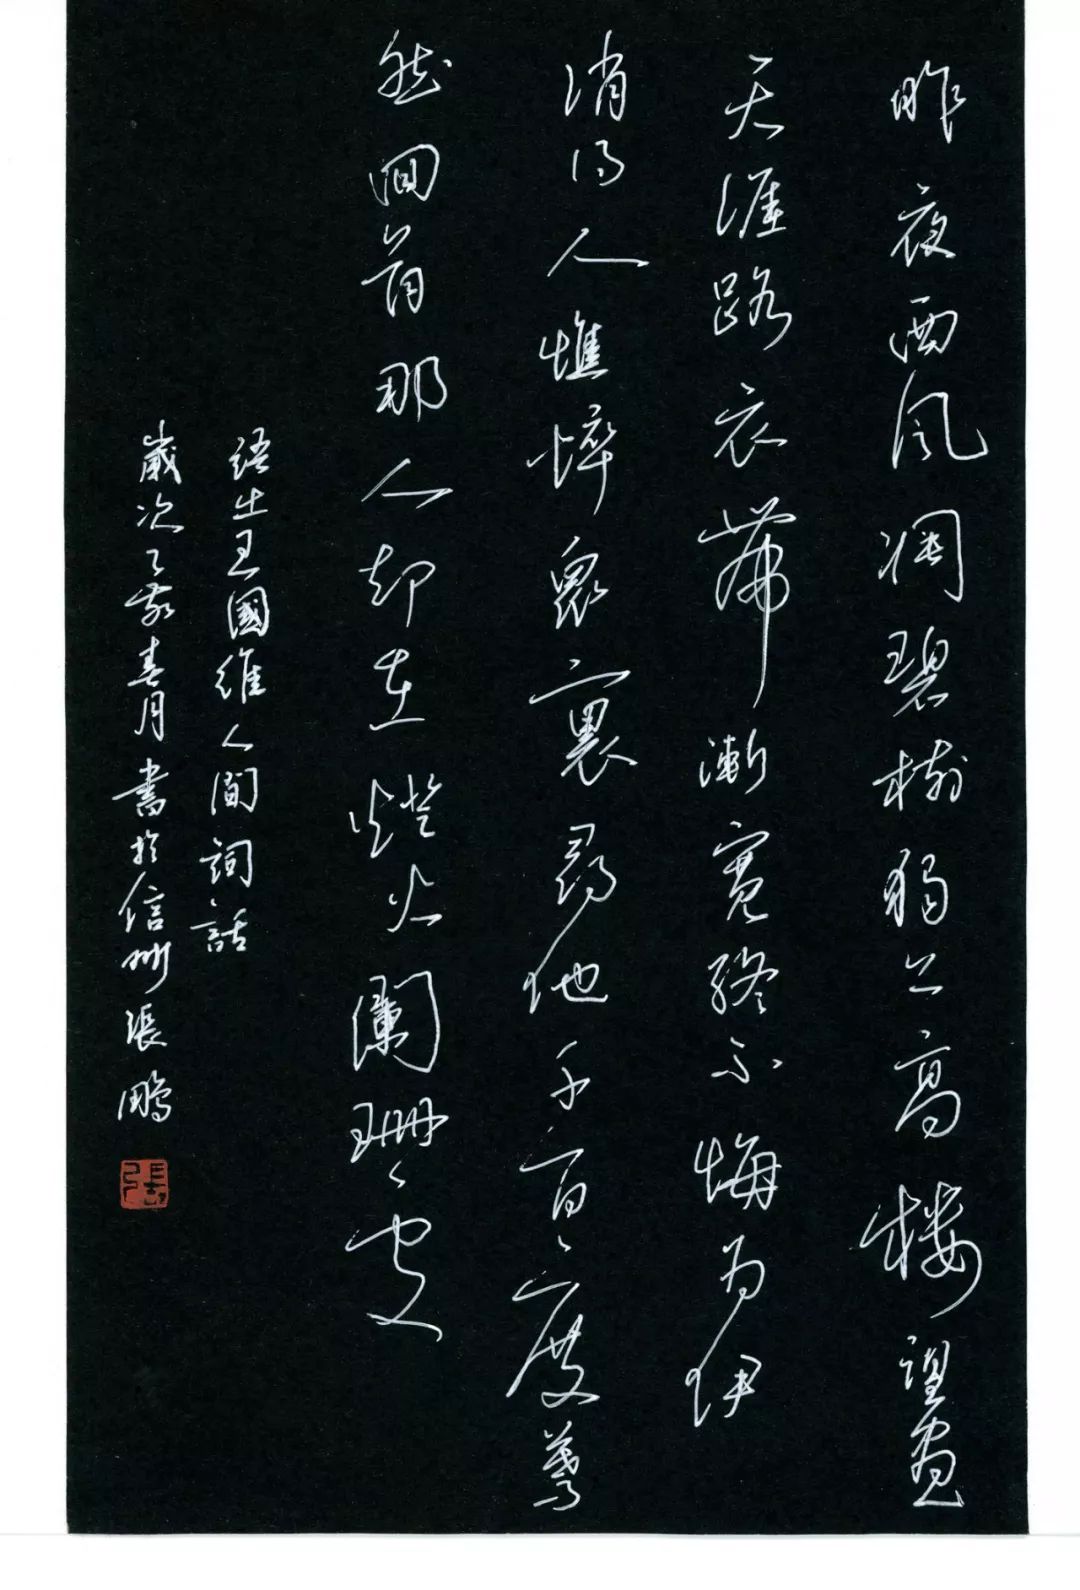 昨夜西風凋碧樹獨上高樓望盡
天涯路衣帶漸寬終不悔為伊
消得人憔悴衆裏尋他千百度驀
然回首那人却在燈火闌珊處
語出王國維人間詞話
歲次丁亥春月書於信州張鵬
張